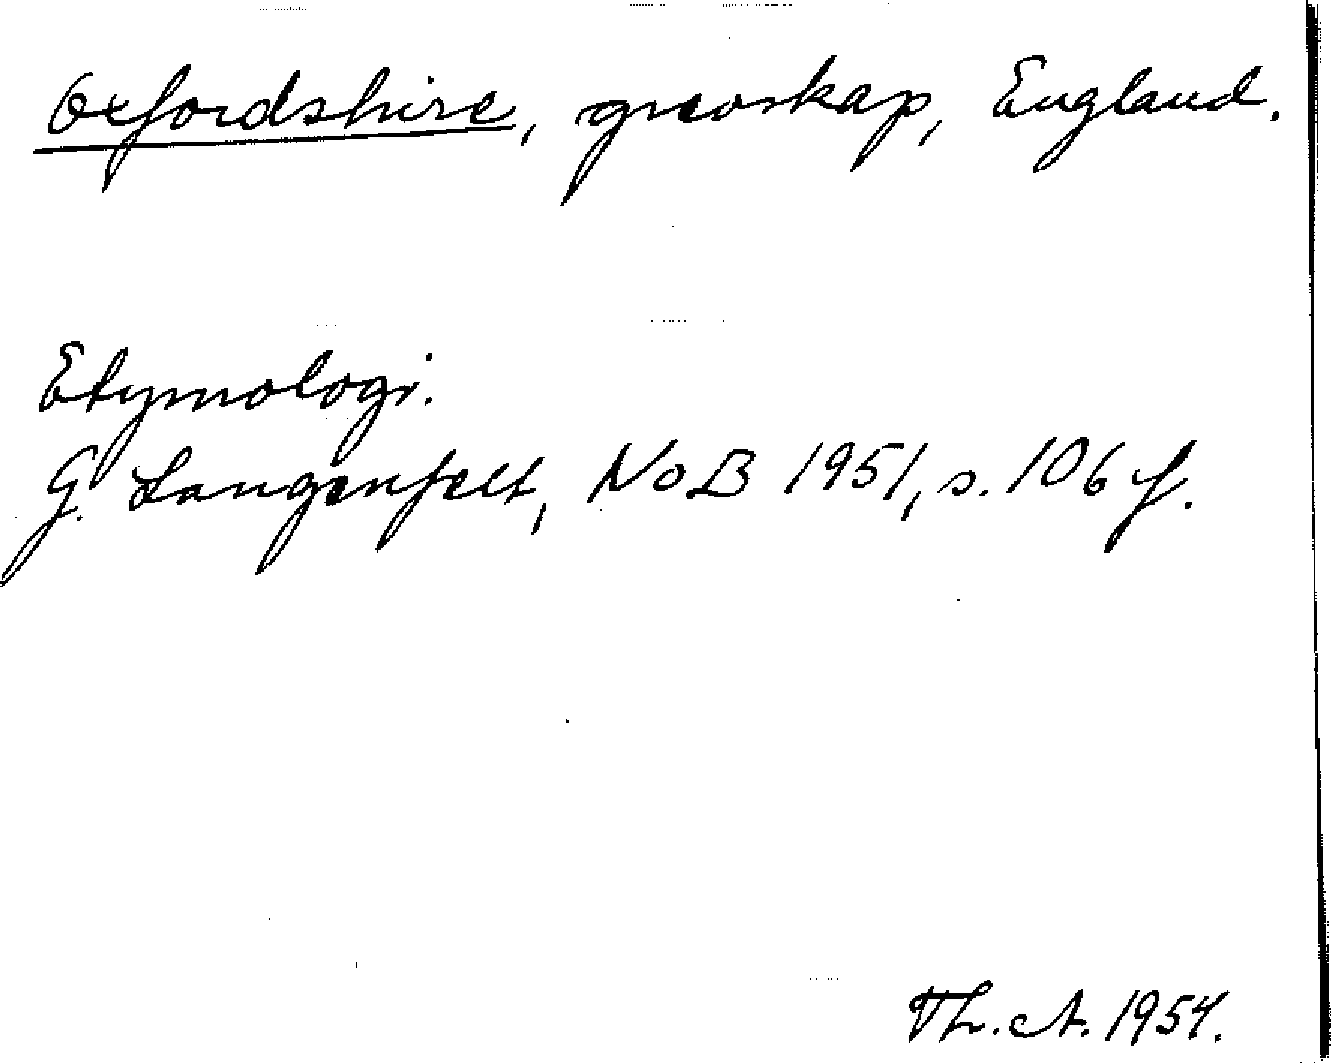 Oxfordshire, grevskap, England.
Etymologi.
G. Langenfelt, NoB 1951, s. 106 f.
Th. A. 1954.